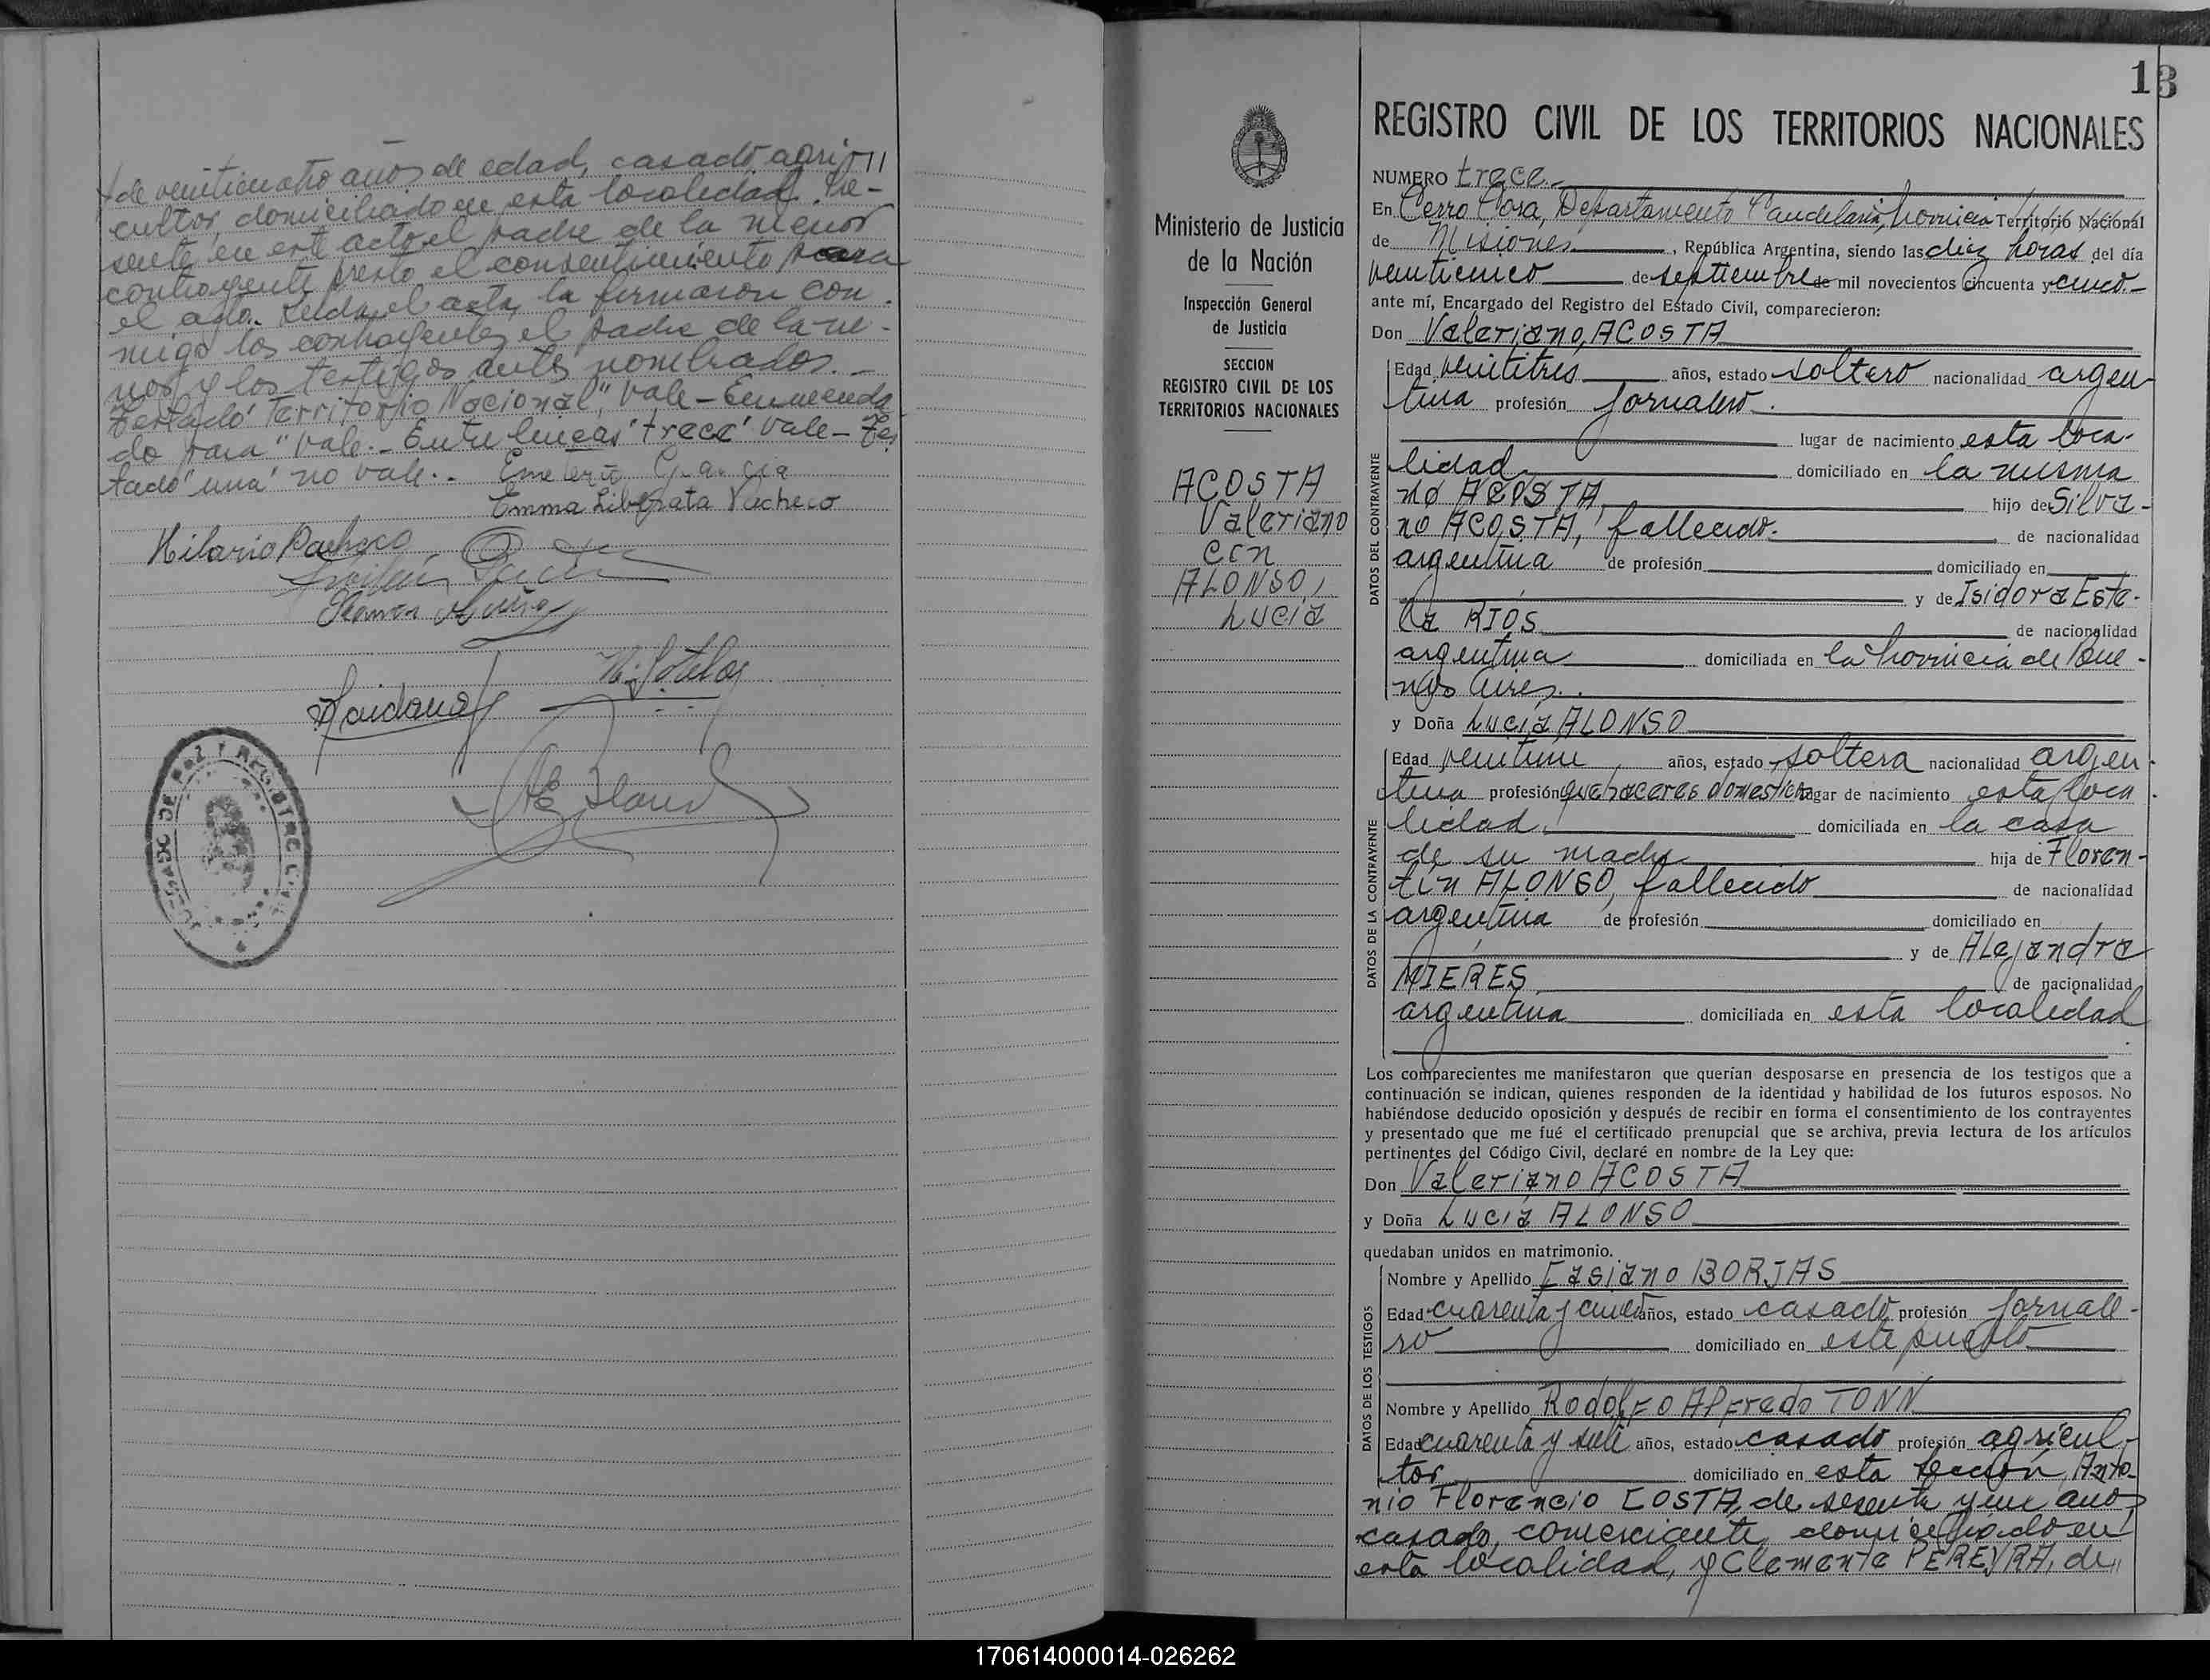 de veinticuatro años de edad, casado, agri-
cultor, domiciliado en esta localidad. Pre-
sente en este acto el padre de la menor
contrayente presto el consentimiento para
el acto. Leida el acta, la firmaron con
migo los contrayentes, el padre de la me-
nor y los testigos antes nombrados.-
Testado "Territorio Nacional", vale - Enmenda
do "para" vale.- Entre lineas "trece" vale - Tes
tado "una" no vale.-
Emeterio Garcia
Emma Liberata Pacheco
Hilario Pacheco
Ramon
N. Sotelo
JUZGADO DE PAZ Y REGISTRO CIVIL
13
REGISTRO CIVIL DE LOS TERRITORIOS NACIONALES
Ministerio de Justicia
de la Nación
Inspección General
de Justicia
SECCION
REGISTRO CIVIL DE LOS
TERRITORIOS NACIONALES
ACOSTA
Valeriano
con
ALONSO,
Lucia
NUMERO trece.-
En Cerro Cora, Departamento Candelaria, Provincia Territorio Nacional
de Misiones, República Argentina, siendo las diez horas del día
veinticinco de septiembre de mil novecientos cincuenta y cinco-
ante mí, Encargado del Registro del Estado Civil, comparecieron:
Don Valeriano, ACOSTA
DATOS DEL CONTRAYENTE
Edad veintitres años, estado soltero nacionalidad argen-
tina profesión jornalero.
lugar de nacimiento esta loca-
lidad domiciliado en la misma
no ACOSTA, hijo de Silva-
no ACOSTA, fallecido. de nacionalidad
argentina de profesión domiciliado en
y de Isidora Este-
la RIOS de nacionalidad
argentina domiciliada en la Provincia de Bue-
nos Aires.
y Doña Lucia, ALONSO
DATOS DE LA CONTRAYENTE
Edad veintiun años, estado soltera nacionalidad argen-
tina profesión quehaceres domesticos lugar de nacimiento esta loca-
lidad, domiciliada en la casa
de su madre hija de Floren-
tin ALONSO, fallecido de nacionalidad
argentina de profesión domiciliado en
y de Alejandra
MIERES de nacionalidad
argentina domiciliada en esta localidad
Los comparecientes me manifestaron que querían desposarse en presencia de los testigos que a
continuación se indican, quienes responden de la identidad y habilidad de los futuros esposos. No
habiéndose deducido oposición y después de recibir en forma el consentimiento de los contrayentes
y presentado que me fué el certificado prenupcial que se archiva, previa lectura de los artículos
pertinentes del Código Civil, declaré en nombre de la Ley que:
Don Valeriano ACOSTA
y Doña Lucia ALONSO
quedaban unidos en matrimonio.
DATOS DE LOS TESTIGOS
Nombre y Apellido Casiano BORJAS
Edad cuarenta y cinco años, estado casado profesión jornale-
ro domiciliado en este pueblo
Nombre y Apellido Rodolfo Alfredo TONN
Edad cuarenta y siete años, estado casado profesión agricul-
tor domiciliado en esta seccion, Anto-
nio Florencio COSTA, de sesenta y un años
casado, comerciante, domiciliado en
esta localidad, y Clemente PEREYRA, de
170614000014-026262